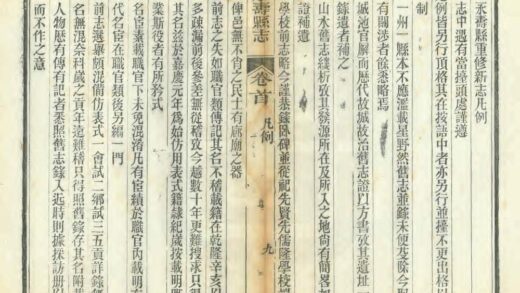 永壽縣重修新志凡例
志中遇有當擡頭處謹遵
例皆另行頂格其在按語中者亦另行並擡不更出格以
制
一州一縣本不應濫載星野然舊志並錄未便芟餘今照
有關涉者餘悉略焉
城池官廨而歷代故城故治舊志證以方書攷其遺址
錄遺者補之
山水舊志綫析攷其發源所在及所入之地尚有簡畧如
證補遺
學校前志略今謹恭錄臥碑並從祀先賢先儒隆學校
壽縣志
卷首
凡例
九
俾邑無不肖之民士有廊廟之器
前志之失如職官傳記其名不稱載籍在乾隆辛亥
多疎漏前後參差無從稽攷今越數十年更難搜求只得
其名並於嘉慶元年為始仿用表式籍隸紀歲按載明
業斯役者有所矜式
名宦表載職官下未免混淆凡有宦績於職官內載明有
代名宦在職官類後另編一門
前志選舉頗混備仿表式一會試二鄉試三五貢詳錄
名無混奈科歲之貢年遠難稽只得照舊錄存其名附
人物歷有傳有記者悉照舊志錄入迄時則據採訪冊
而不作之意